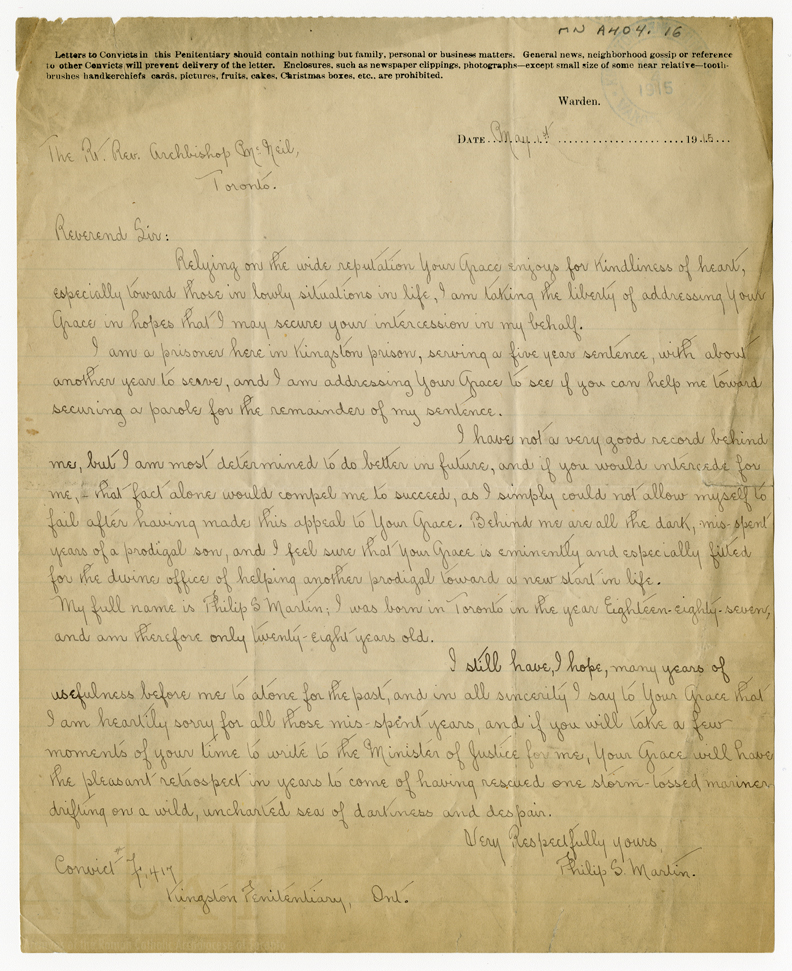 MN A404. 16
Letters to Convicts in this Penitentiary should contain nothing but family, personal or business matters. General news, neighborhood gossip or reference
to other Convicts will prevent delivery of the letter. Enclosures, such as newspaper clippings, photographs—except small size of some near relative—tooth-
brushes handkerchiefs cards, pictures, fruits, cakes, Christmas boxes, etc., are prohibited.
1915
Warden.
DATE May 1st 1915
The Rt. Rev. Archbishop McNeil,
Toronto.
Reverend Sir:
Relying on the wide reputation Your Grace enjoys for kindliness of heart,
especially toward those in lowly situations in life, I am taking the liberty of addressing Your
Grace in hopes that I may secure your intercession in my behalf.
I am a prisoner here in Kingston prison, serving a five year sentence, with about
another year to serve, and I am addressing Your Grace to see if you can help me toward
securing a parole for the remainder of my sentence.
I have not a very good record behind
me, but I am most determined to do better in future, and if you would intercede for
me, - that fact alone would compel me to succeed, as I simply could not allow myself to
fail after having made this appeal to Your Grace. Behind me are all the dark, mis-spent
years of a prodigal son, and I feel sure that Your Grace is eminently and especially fitted
for the divine office of helping another prodigal toward a new start in life.
My full name is Philip S Martin; I was born in Toronto in the year Eighteen-eighty-seven,
and am therefore only twenty-eight years old.
I still have, I hope, many years of
usefulness before me to atone for the past, and in all sincerity I say to Your Grace that
I am heartily sorry for all those mis-spent years, and if you will take a few
moments of your time to write to the Minister of Justice for me, Your Grace will have
the pleasant retrospect in years to come of having rescued one storm-tossed mariner
drifting on a wild, uncharted sea of darkness and despair.
Very Respectfully yours,
Philip S. Martin.
Convict # F. 417
Kingston Penitentiary, Ont.
Archives of the Roman Catholic Archdiocese of Toronto